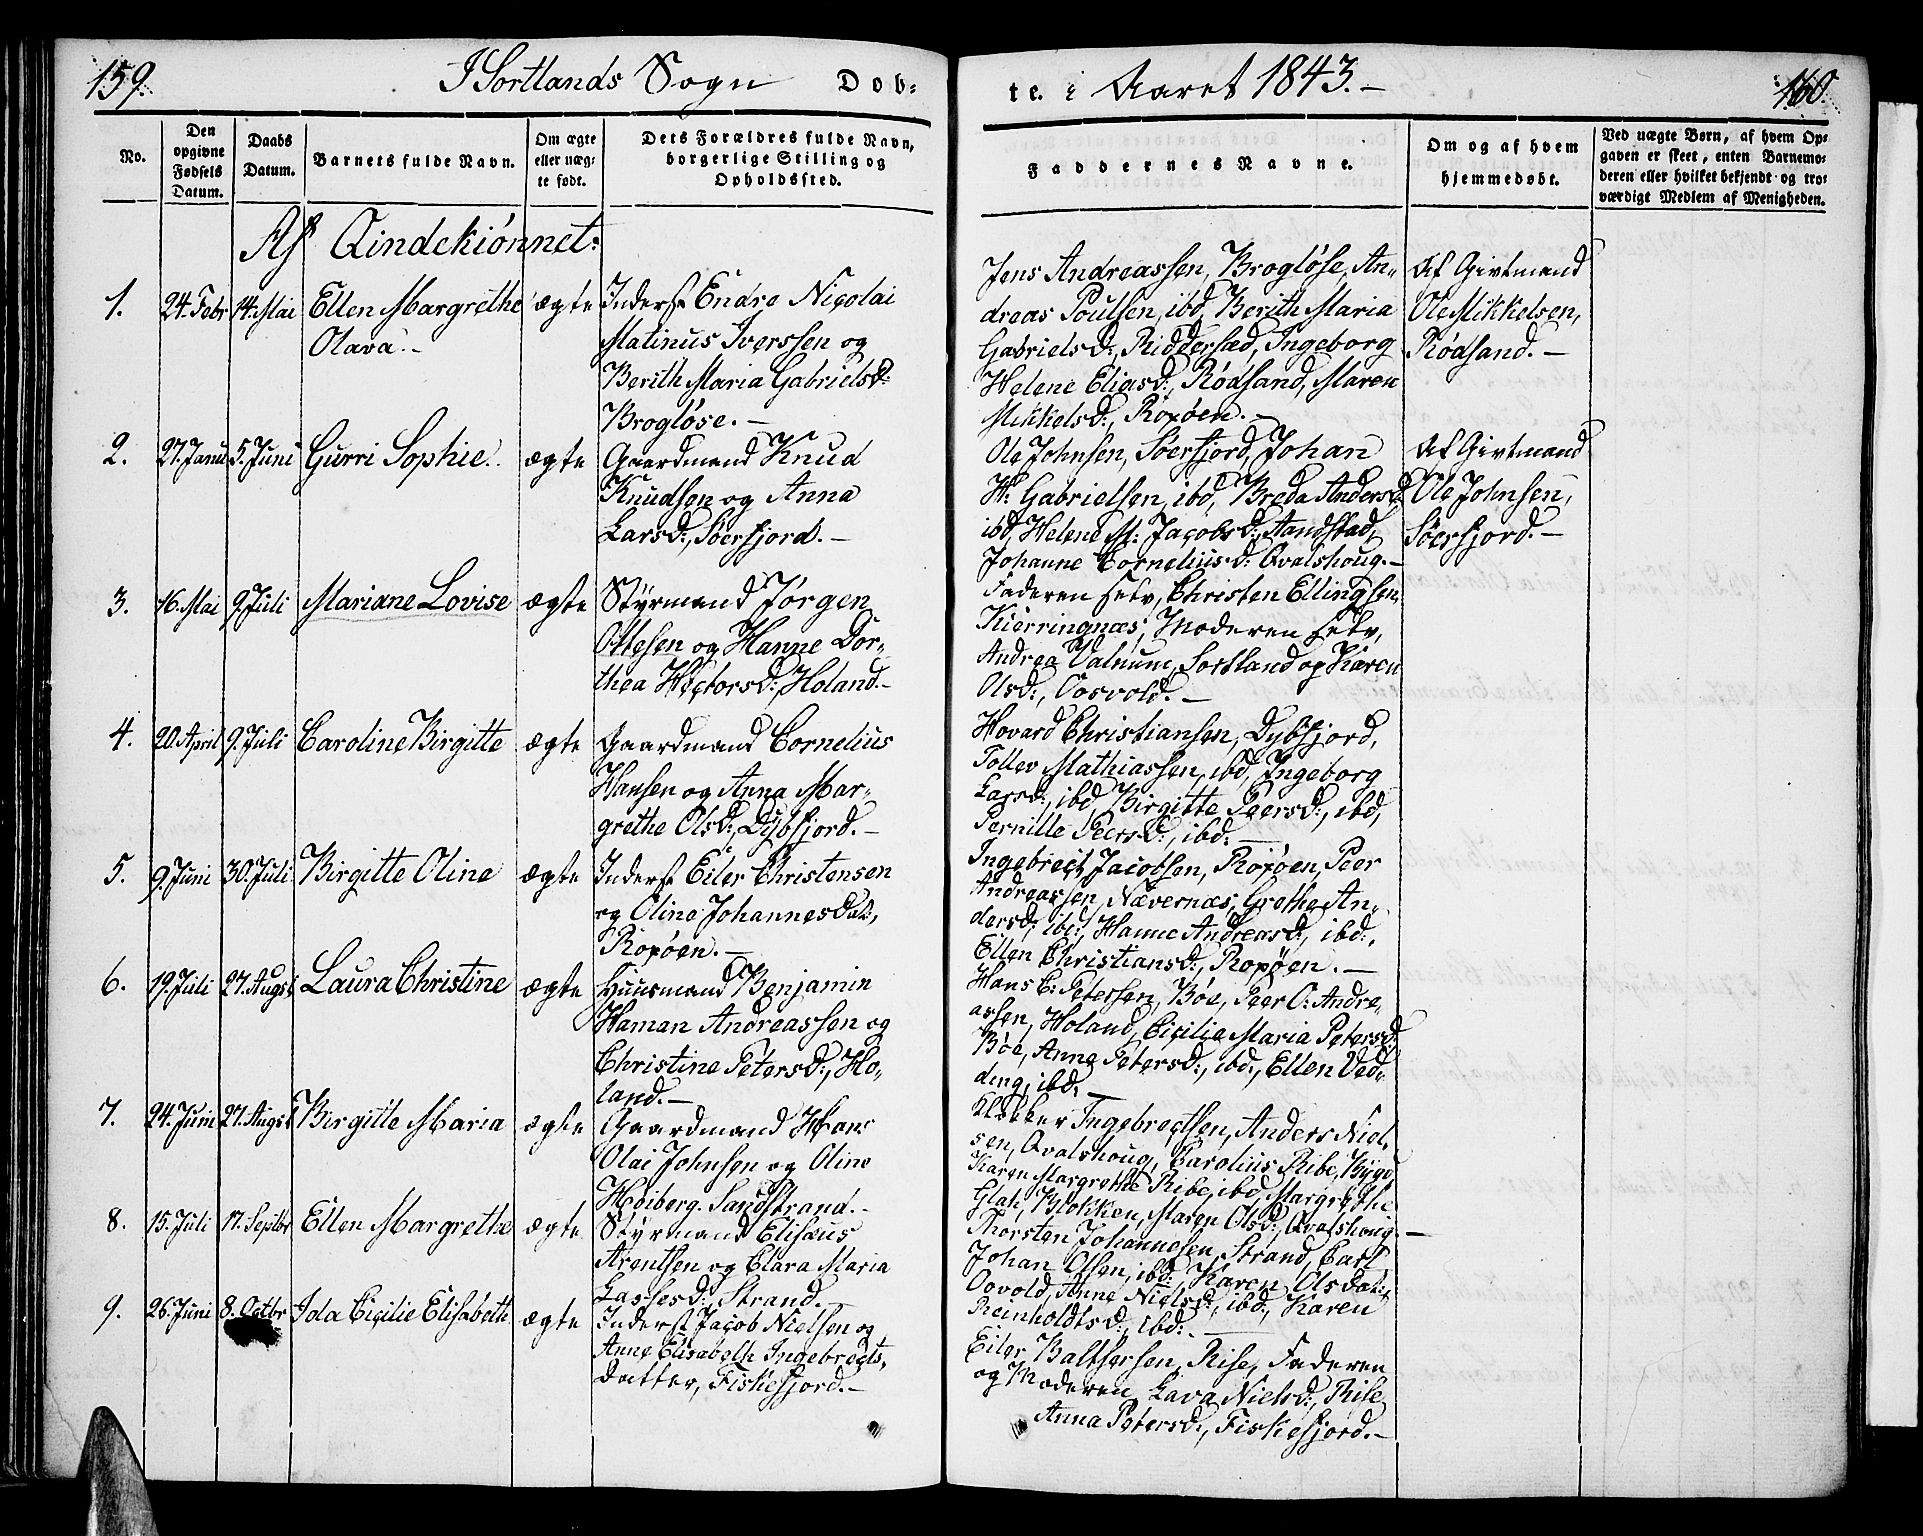 159.
I Sortlands Sogn Døb-
No.
Den opgivne Fødsels Datum.
Daabs Datum.
Barnets fulde Navn.
Om ægte eller uæg-te født.
Dets Forældres fulde Navn, borgerlige Stilling og Opholdssted.
Af Qindekiønnet:
1. 24. Febr 14. Mai Ellen Margrethe ægte Inderst Endre Nicolai
Olava.- Matinus Iverssen og
Berith Maria Gabrielsd:
Brogløse.-
2. 27. Janu 5. Juni Gurri Sophie. ægte Gaardmand Knud
Knudsen og Anna
Larsd:, Søerfjord.-
3. 16. Mai 9. Juli Mariane Lovise ægte Styrmand Jørgen
Ottesen og Hanne Dor-
thea Hectorsd:, Holand.-
4. 20. April 9. Juli Caroline Birgitte ægte Gaardmand Cornelius
Hansen og Anna Mar-
grethe Olsd:, Dybfjord.-
5. 9. Juni 30. Juli Birgitte Oline ægte Inderst Eiler Christensen
og Oline Johannesdat:,
Ropøen.-
6. 19. Juli 27. Augst Laura Christine ægte Huusmand Benjamin
Haman Andreassen og
Christine Petersd:, Ho-
land.-
7. 24. Juni 27. Augst Birgitte Maria ægte Gaardmand Hans
Olai Johnsen og Oline
Høiberg, Sandstrand.-
8. 15. Juli 17. Septbr Ellen Margrethe ægte Styrmand Elisæus
Arentsen og Clara Maria
Lassesd:, Strand.-
9. 26. Juni 8. Octbr Ida Cicilie Elisabeth ægte Inderst Jacob Nielsen og
Anne Elisabeth Ingebregts-
Datter, Fiskefjord.-
te. i Aaret 1843.-
160.
Faddernes Navne.
Om og af hvem hjemmedøbt.
Ved uægte Børn, af hvem Op-
gaven er skeet, enten Barnemo-
deren eller hvilket bekjendt og tro-
værdigt Medlem af Menigheden.
Jens Andreassen, Brogløse, An- Af Givtmand
dreas Poulsen, ibd, Berith Maria Ole Mikkelsen,
Gabrielsd:, Riddersæd, Ingeborg Rødsand.-
Helene Eliasd:, Rødsand, Maren
Mikkelsd:, Ropøen.-
Ole Johnsen, Søerfjord, Johan Af Givtmand
H: Gabrielsen, ibd, Breda Andersd: Ole Johnsen,
ibd, Helene M: Jacobsd:, Aandstad, Søerfjord.-
Johanne Corneliusd: Qvalshoug.-
Faderen selv, Christen Ellingsen,
Kierringnæs, Moderen selv,
Andrea Valnum, Sortland og Karen
Olsd:, Oosvold.-
Hovard Christiansen, Dybfjord,
Tollev Mathiassen, ibd, Ingeborg
Larsd:, ibd, Birgitte Peersd:, ibd,
Pernille Peersd:, ibd.-
Ingebrect Jacobsen, Ropøen, Peer
Andreassen, Nævernæs, Grethe An-
dersd:, ibd:, Hanne Andreasd:, ibd:,
Ellen Christiansd:, Ropøen.-
Hans C: Petersen, Bøe, Peer O: Andre-
assen, Holand, Cicilie Maria Petersd:
Bøe, Anne Petersd:, ibd:, Ellen Ved-
ding, ibd:-
Klokker Ingebregtsen, Anders Niel-
sen, Qvalshoug, Carolius Ribe, Bygd
Karen Margrethe Ribe, ibd, Margrethe
Glad, Blokken, Maren Olsd:, Qvalshoug.-
Thorsten Johannesen, Strand, Carl
Johan Olsen, ibd:, Karen Olsdat:,
Oovold, Anne Nielsd:, ibd:, Karen
Reinholdtsd:, ibd:-
Eiler Balthersen, Rise, Faderen
og Moderen, Lava Nielsd:, Rise,
Anna Petersd:, Fiskefjord.-